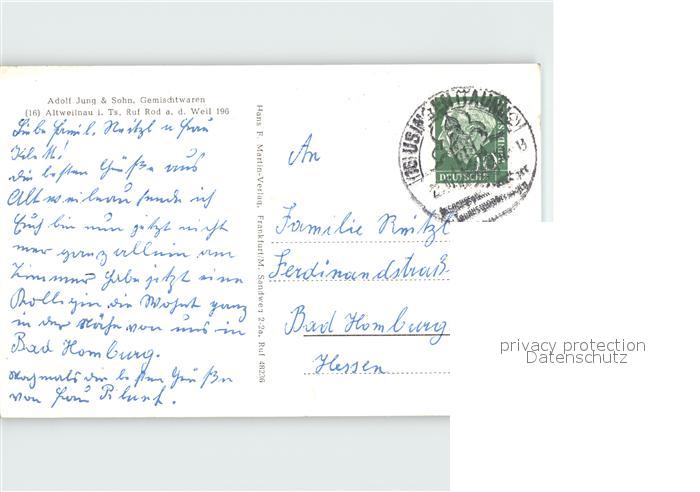 Adolf Jung & Sohn, Gemischtwaren
(16) Altweilnau i. Ts, Ruf Rod a. d. Weil 196
Liebe Famil. Reitzl u Frau
die besten Grüße aus
Altweilnau sende ich
Euch bin nun jetzt nicht
mer ganz allein am
Zimmer habe jetzt eine
Kollegin die Wohnt ganz
in der Nähe von uns in
Bad Homburg.
Nochmals die besten Grüße
von Frau
Hans F. Martin-Verlag, Frankfurt/M. Sandweg 2-2a, Ruf 48236
An
Familie Reitzl
Ferdinandstraß
Bad Homburg
Hessen
10
DEUTSCHE
privacy protection
Datenschutz